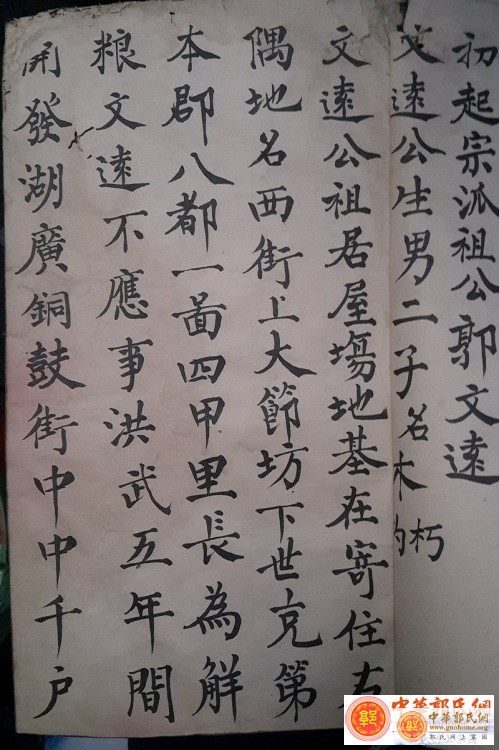 初起宗派祖公郭文遠
文遠公生男二子名木朽
文遠公祖居屋塲地基在寄住右
隅地名西街上大節坊下世充第
本郡八都一啚四甲里長為解
粮文遠不應事洪武五年間
開發湖廣銅鼓街中中千户
中華郭氏網
中華郭氏網
www.guohome.org
郭氏網上家園